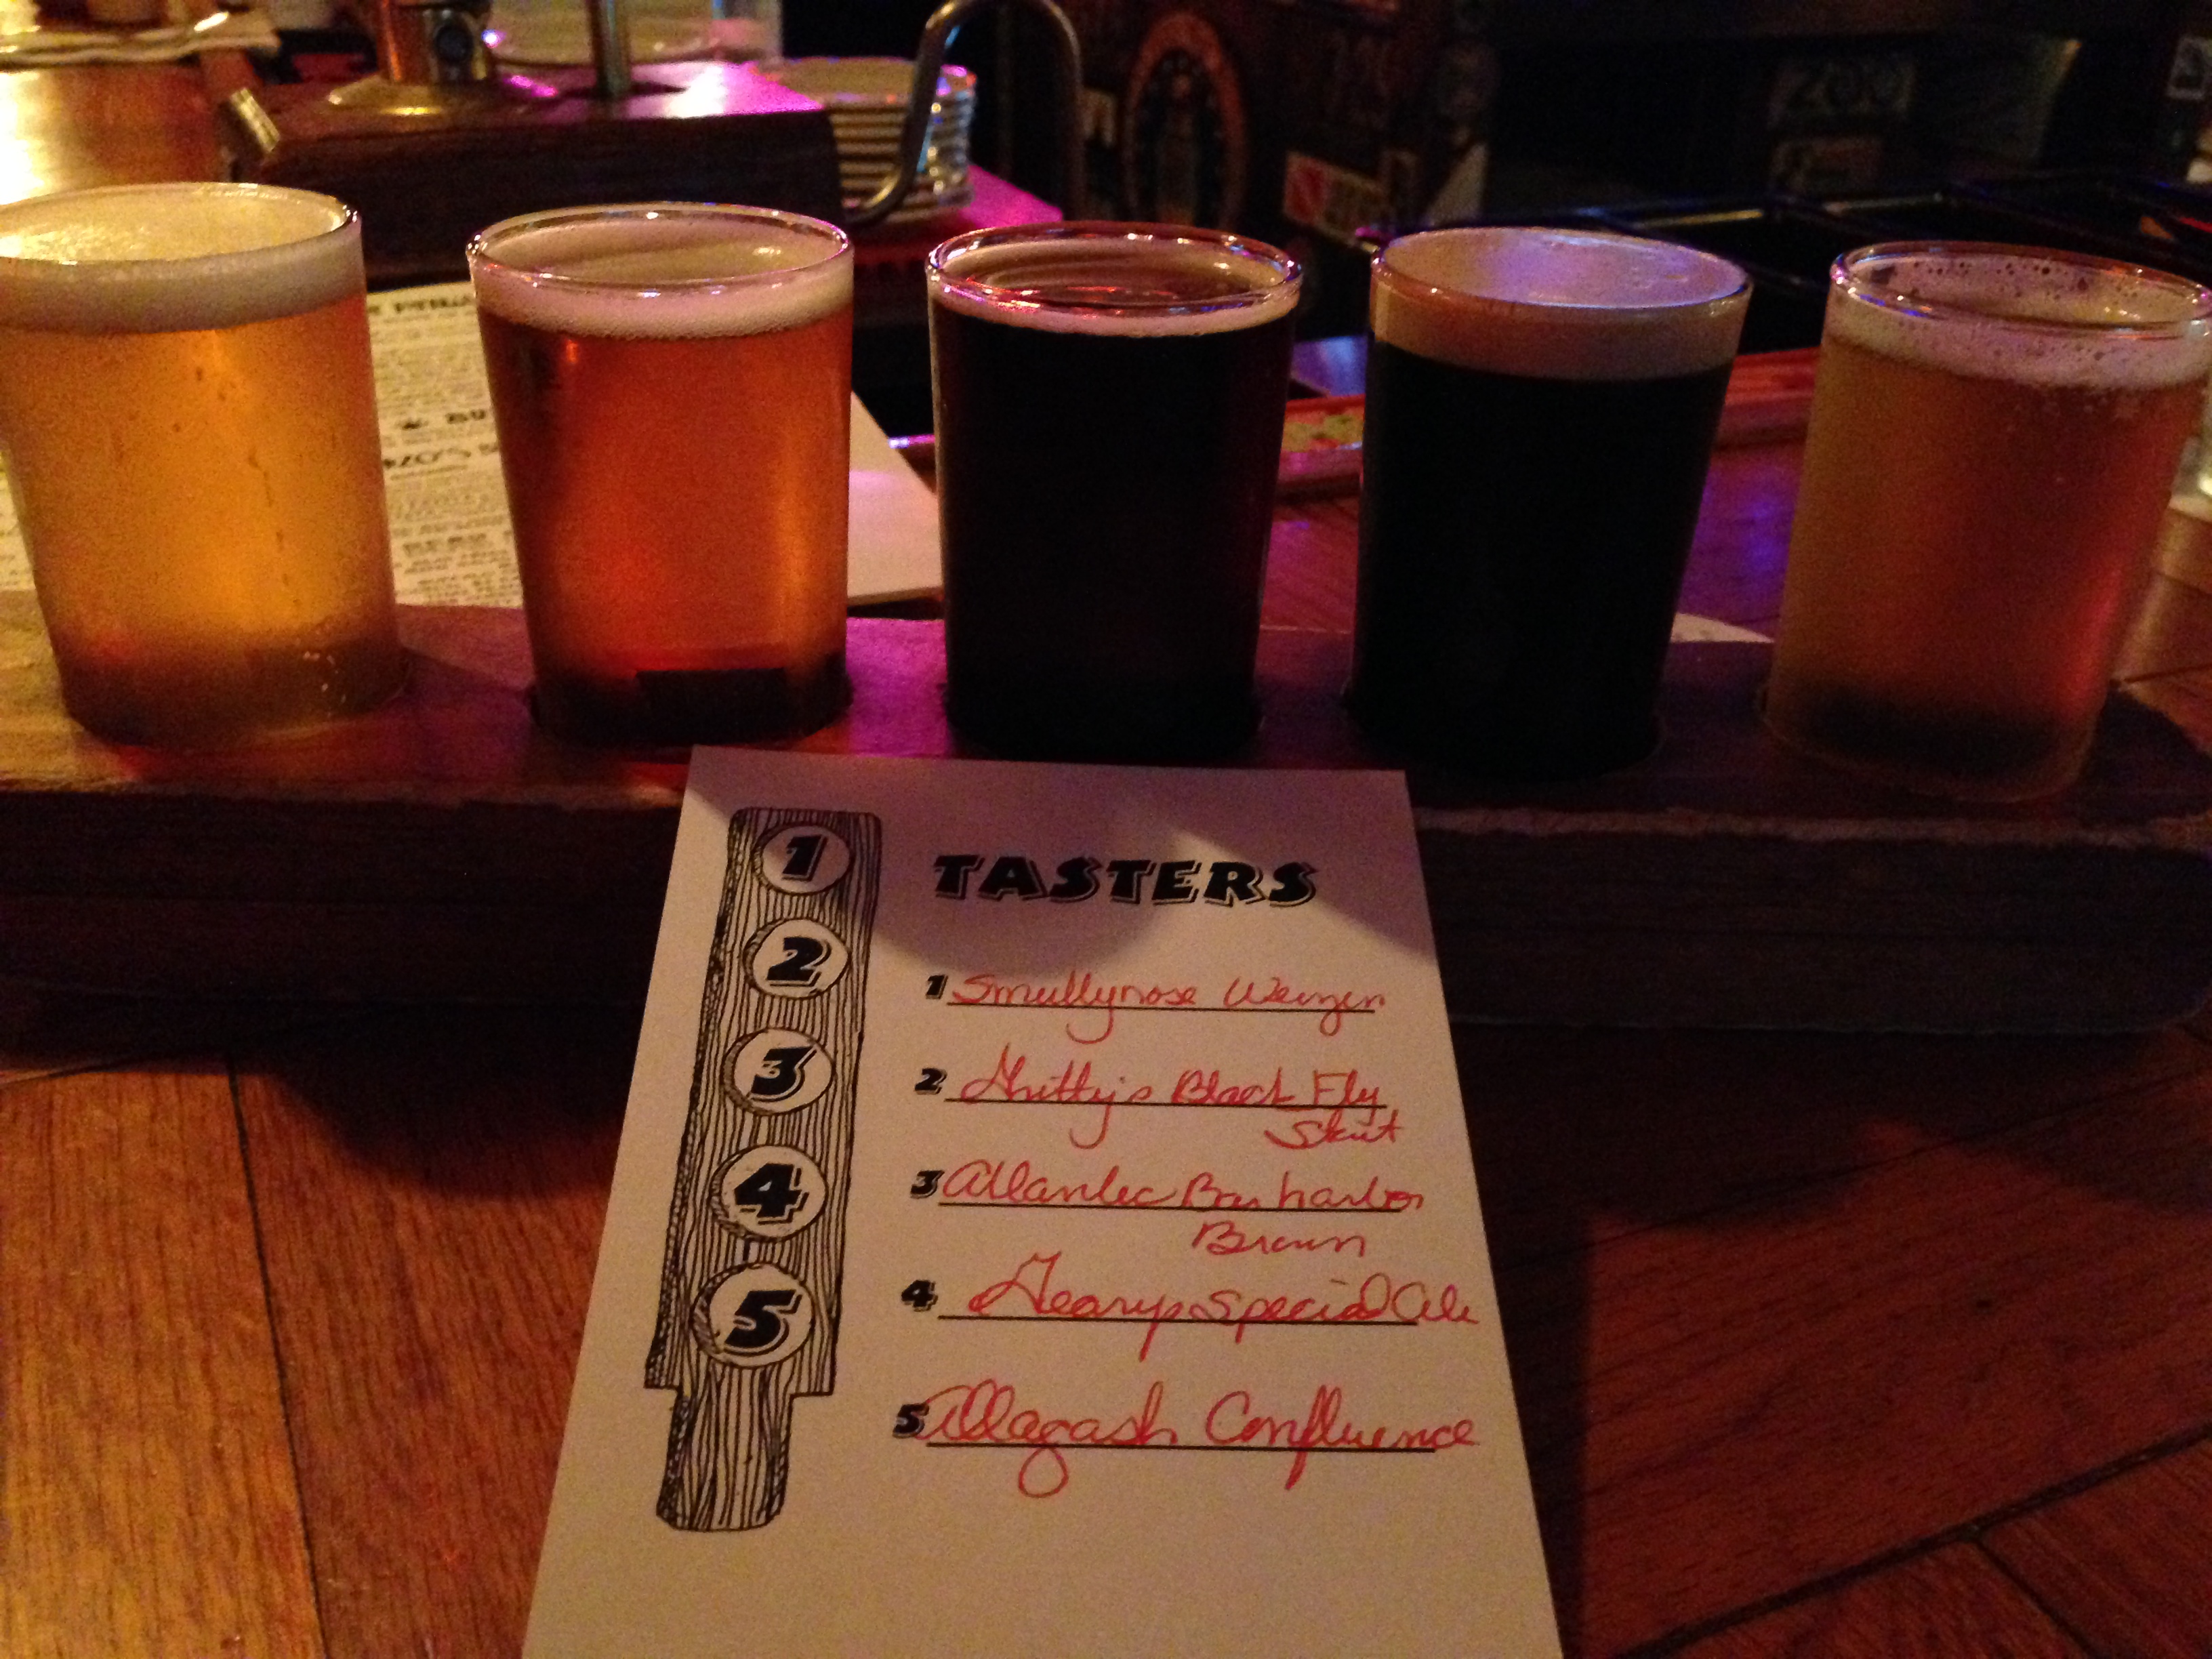 200
1
2
3
4
5
TASTERS
1 Smuttynose Weizen
2 Gritty's Black Fly
Stout
3 Atlantic Bar harbor
Brown
4 Gearys Special Ale
5 Allagash Confluence